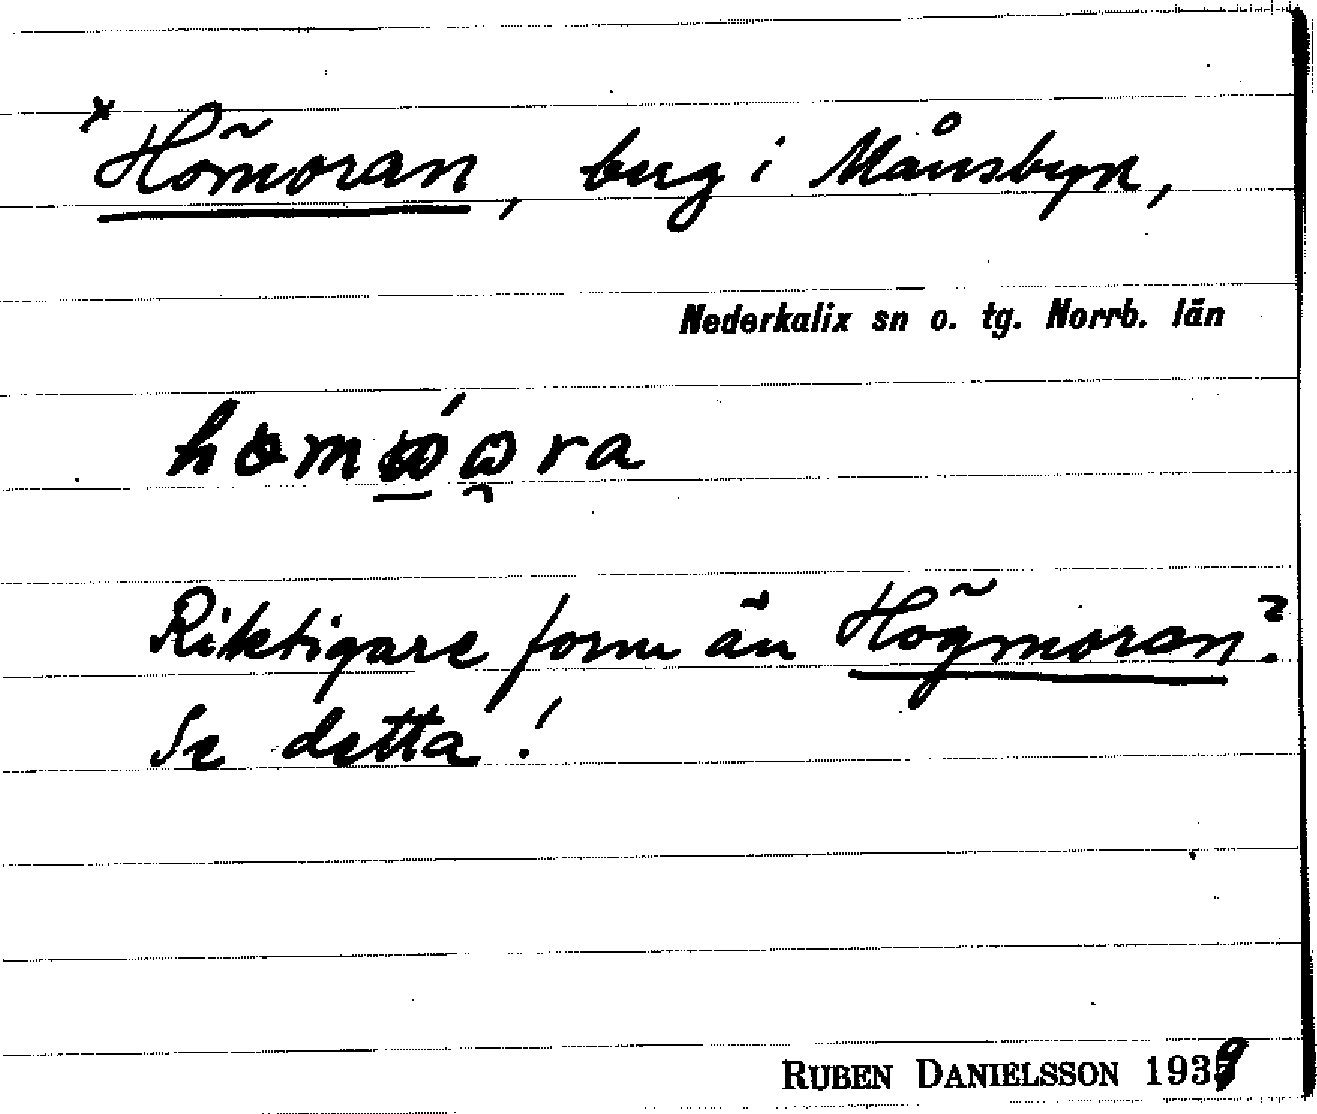 × Hömoran, berg i Månsbyn,
Nederkalix sn o. tg. Norrb. län
Riktigare form än Högmoran?
Se detta!
RUBEN DANIELSSON 1939